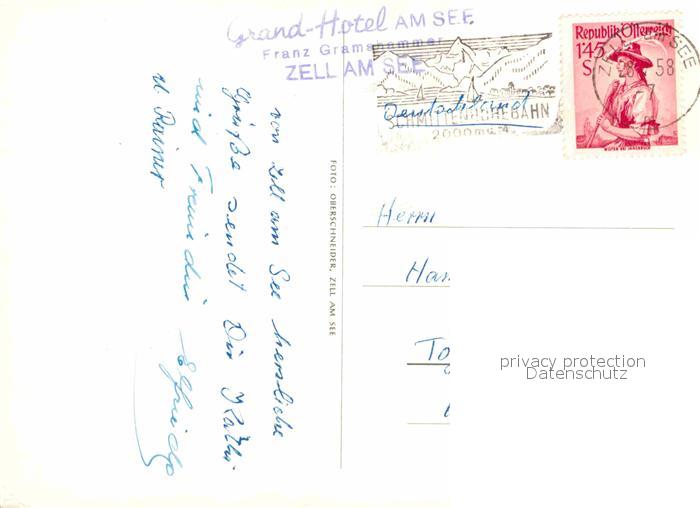 Grand-Hotel AM SEE
Franz Gramshammer
ZELL AM SEE
Republik Österreich
1.45
S
WILTEN BEI INNSBRUCK
ZELL AM SEE
58
SCHMITTENHÖHEBAHN
2000m
Deutschland
von Zell am See herzliche
Grüße sendet Dir
und Freundin Elfriede
u. Rainer
FOTO: OBERSCHNEIDER, ZELL AM SEE
Herrn
privacy protection
Datenschutz